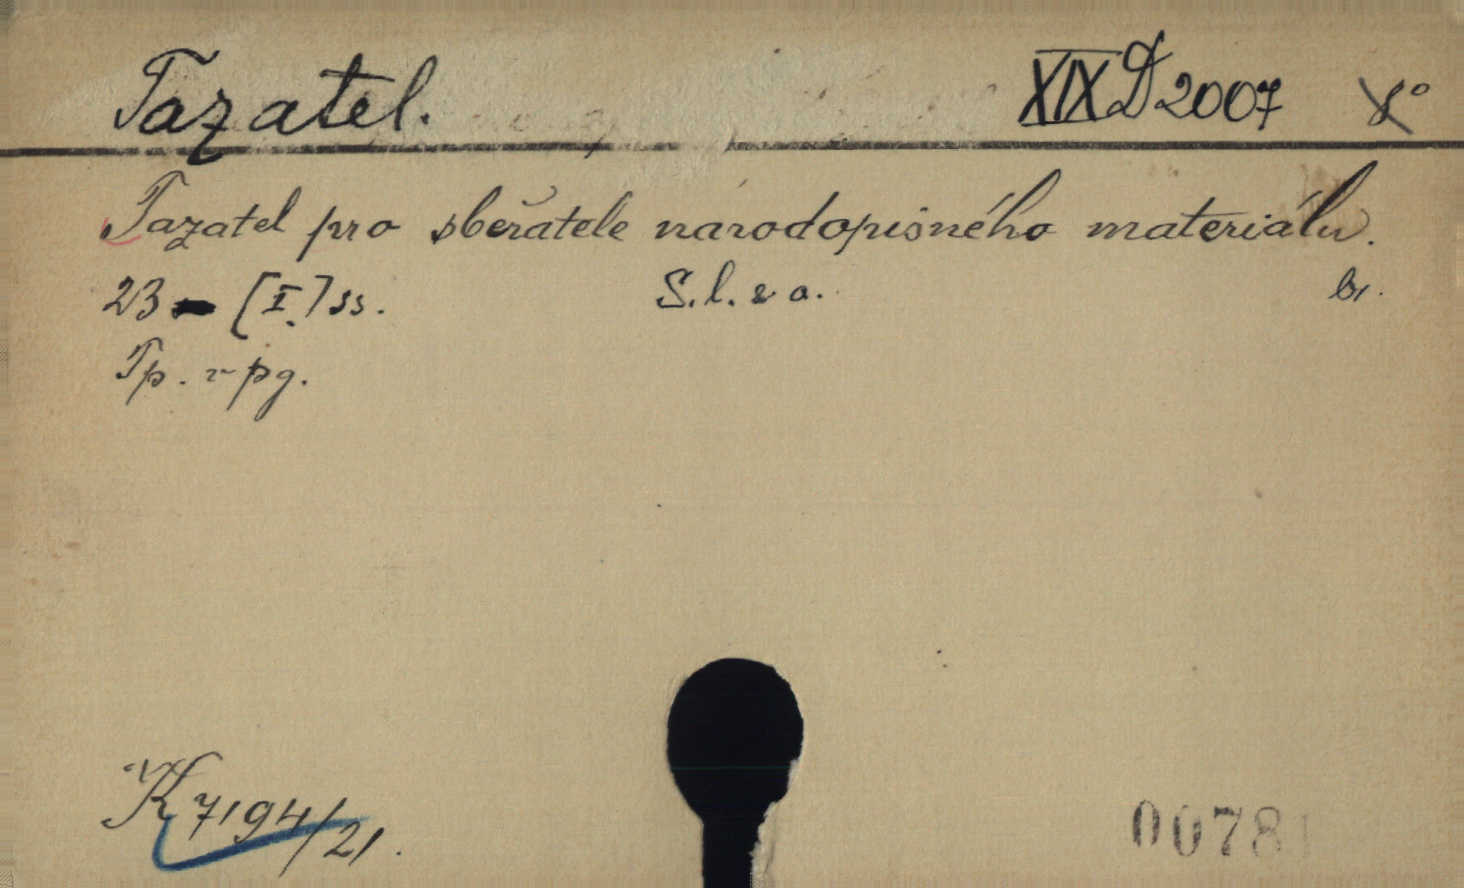 Tazatel. XIX D 2007 8°
Tazatel pro sběratele národopisného materiálu.
23 - [I.] ss. S. l. & a. br.
Tp. v pg.
K 7194/21.
00781